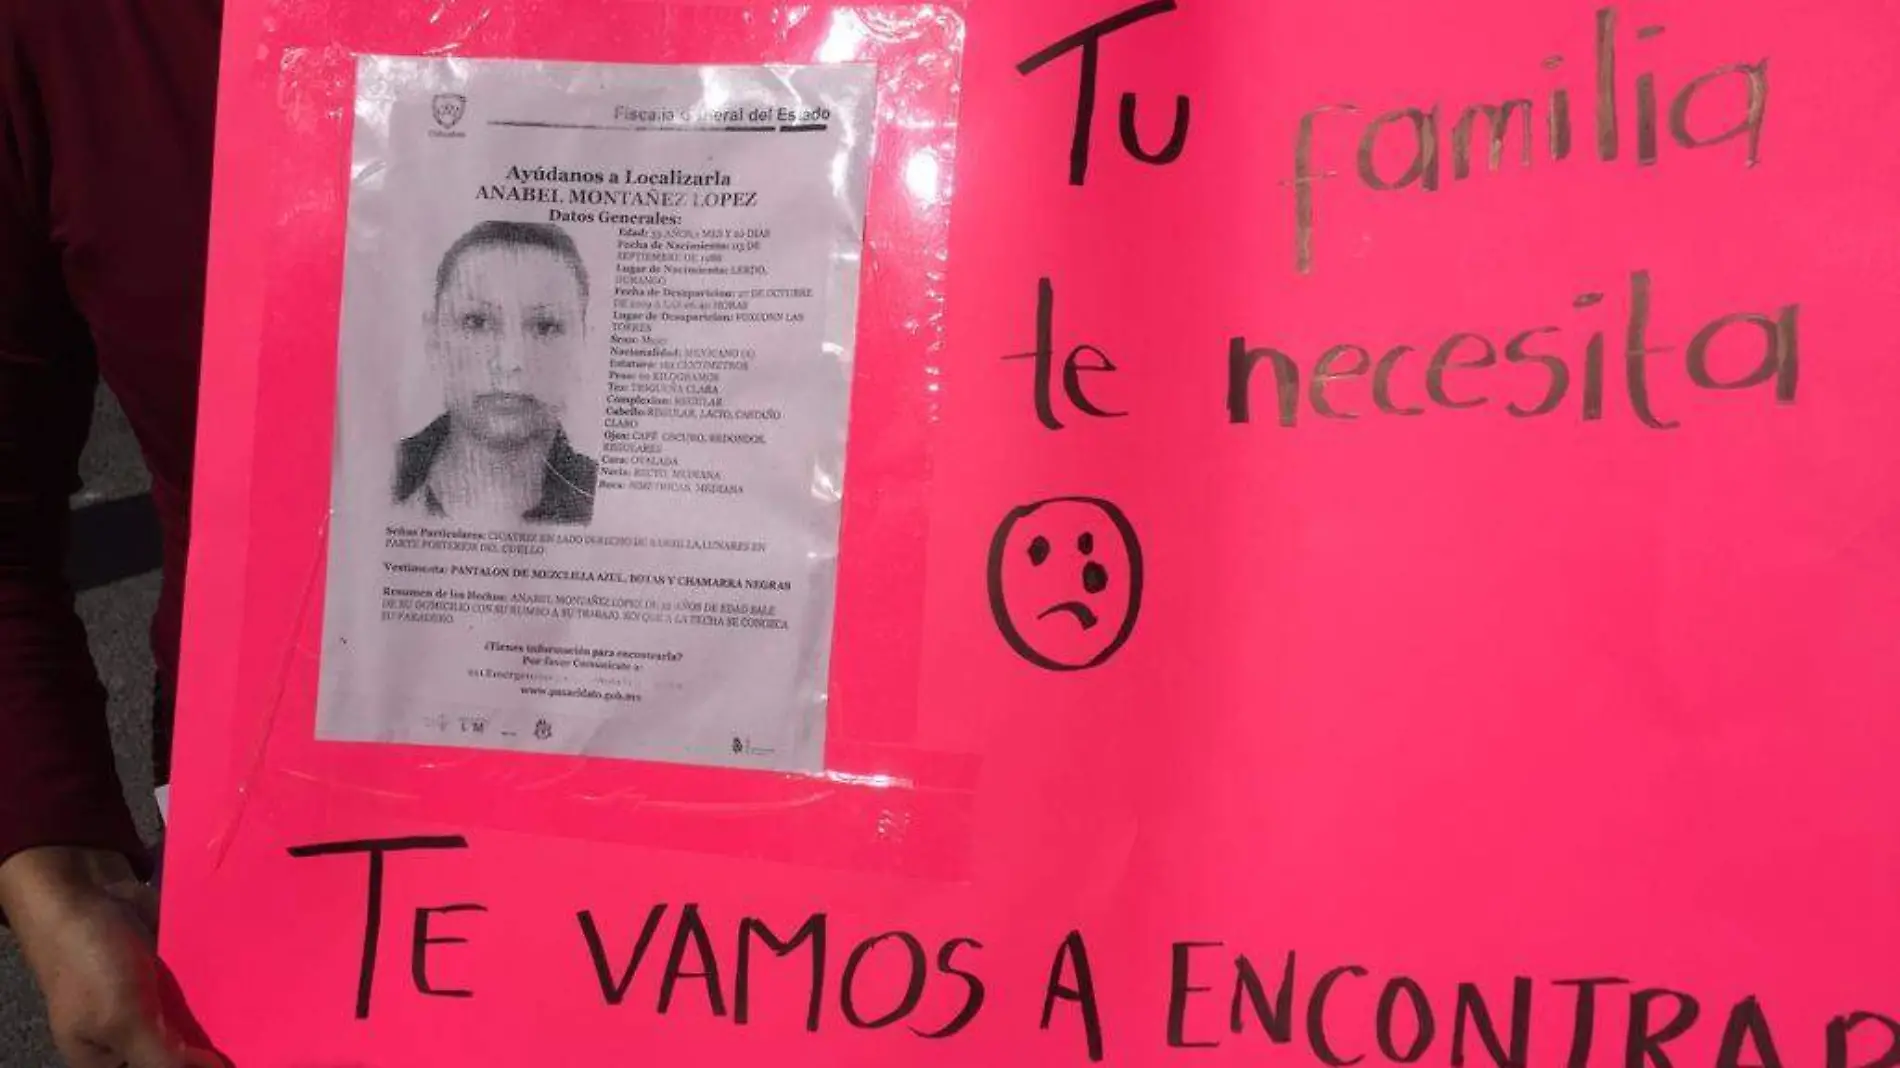 Chihuahua
Fiscalía General del Estado
Ayúdanos a Localizarla
ANABEL MONTAÑEZ LOPEZ
Datos Generales:
Edad: 33 AÑOS, 1 MES Y DIAS
Fecha de Nacimiento: 03 DE
SEPTIEMBRE DE
Lugar de Nacimiento: LERDO,
DURANGO
Fecha de Desaparicion: 27 DE OCTUBRE
DE HORAS
Lugar de Desaparicion: FOXCONN LAS
TORRES
Sexo: Mujer
Nacionalidad: MEXICANO (A)
Estatura: CENTIMETROS
Peso: KILOGRAMOS
Tez: TRIGUEÑA CLARA
Complexion: REGULAR
Cabello: REGULAR, LACIO, CASTAÑO
CLARO
Ojos: CAFÉ OSCURO, REDONDOS,
REGULARES
Cara: OVALADA
Nariz: RECTO, MEDIANA
Boca: SIMETRICAS, MEDIANA
Señas Particulares: CICATRIZ EN LADO DERECHO DE BARBILLA, LUNARES EN
PARTE POSTERIOR DEL CUELLO
Vestimenta: PANTALON DE MEZCLILLA AZUL, BOTAS Y CHAMARRA NEGRAS
Resumen de los Hechos: ANABEL MONTAÑEZ LOPEZ DE AÑOS DE EDAD SALE
DE SU DOMICILIO CON SU RUMBO A SU TRABAJO, SIN QUE A LA FECHA SE CONOZCA
SU PARADERO.
¿Tienes información para encontrarla?
Por favor Comunicate a:
www.pasaeldato.gob.mx
Tu familia
te necesita
TE VAMOS A ENCONTRAR